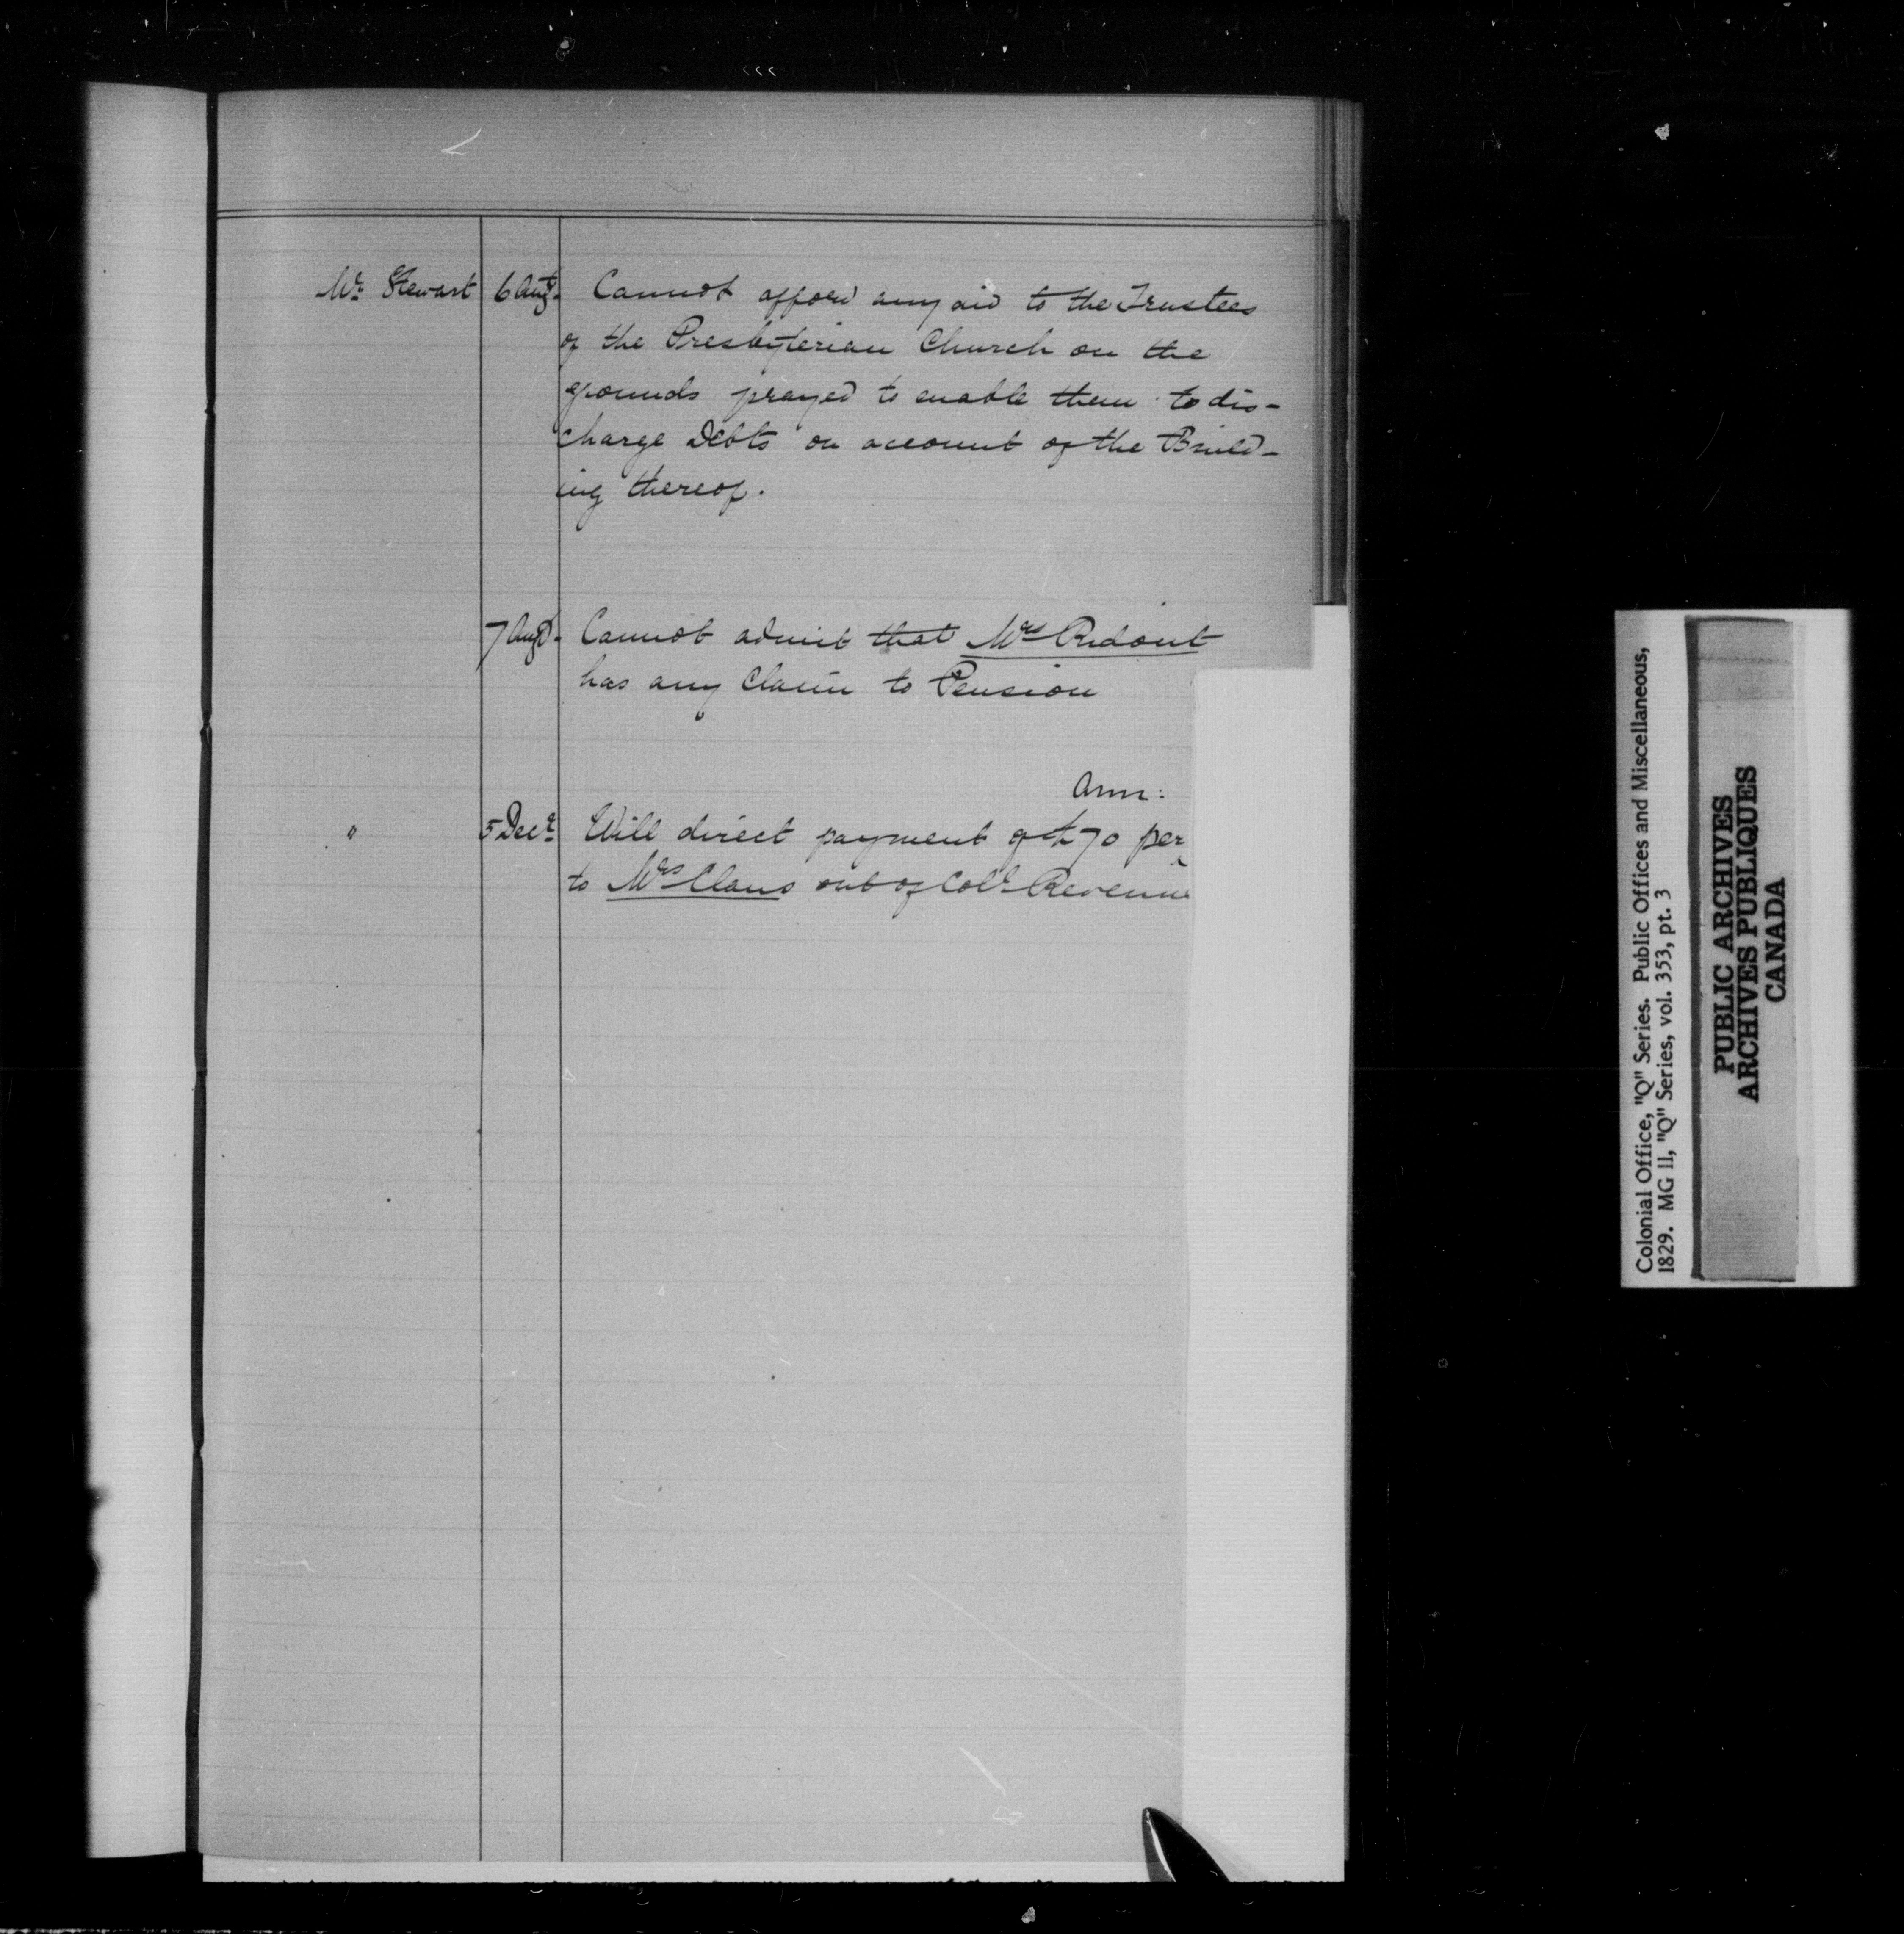 Mr Stewart 6 Augt. Cannot afford any aid to the Trustees
of the Presbyterian Church on the
grounds prayed to enable them to dis-
charge Debts on account of the Build-
ing thereof.
7 Augt. Cannot admit that Mrs Ridout
has any Claim to Pension
Ann:
" 5 Decr Will direct payment of £70 per
to Mrs Claus out of Coll Revenue
Colonial Office, "Q" Series. Public Offices and Miscellaneous,
1829. MG 11, "Q" Series, vol. 353, pt. 3
PUBLIC ARCHIVES
ARCHIVES PUBLIQUES
CANADA